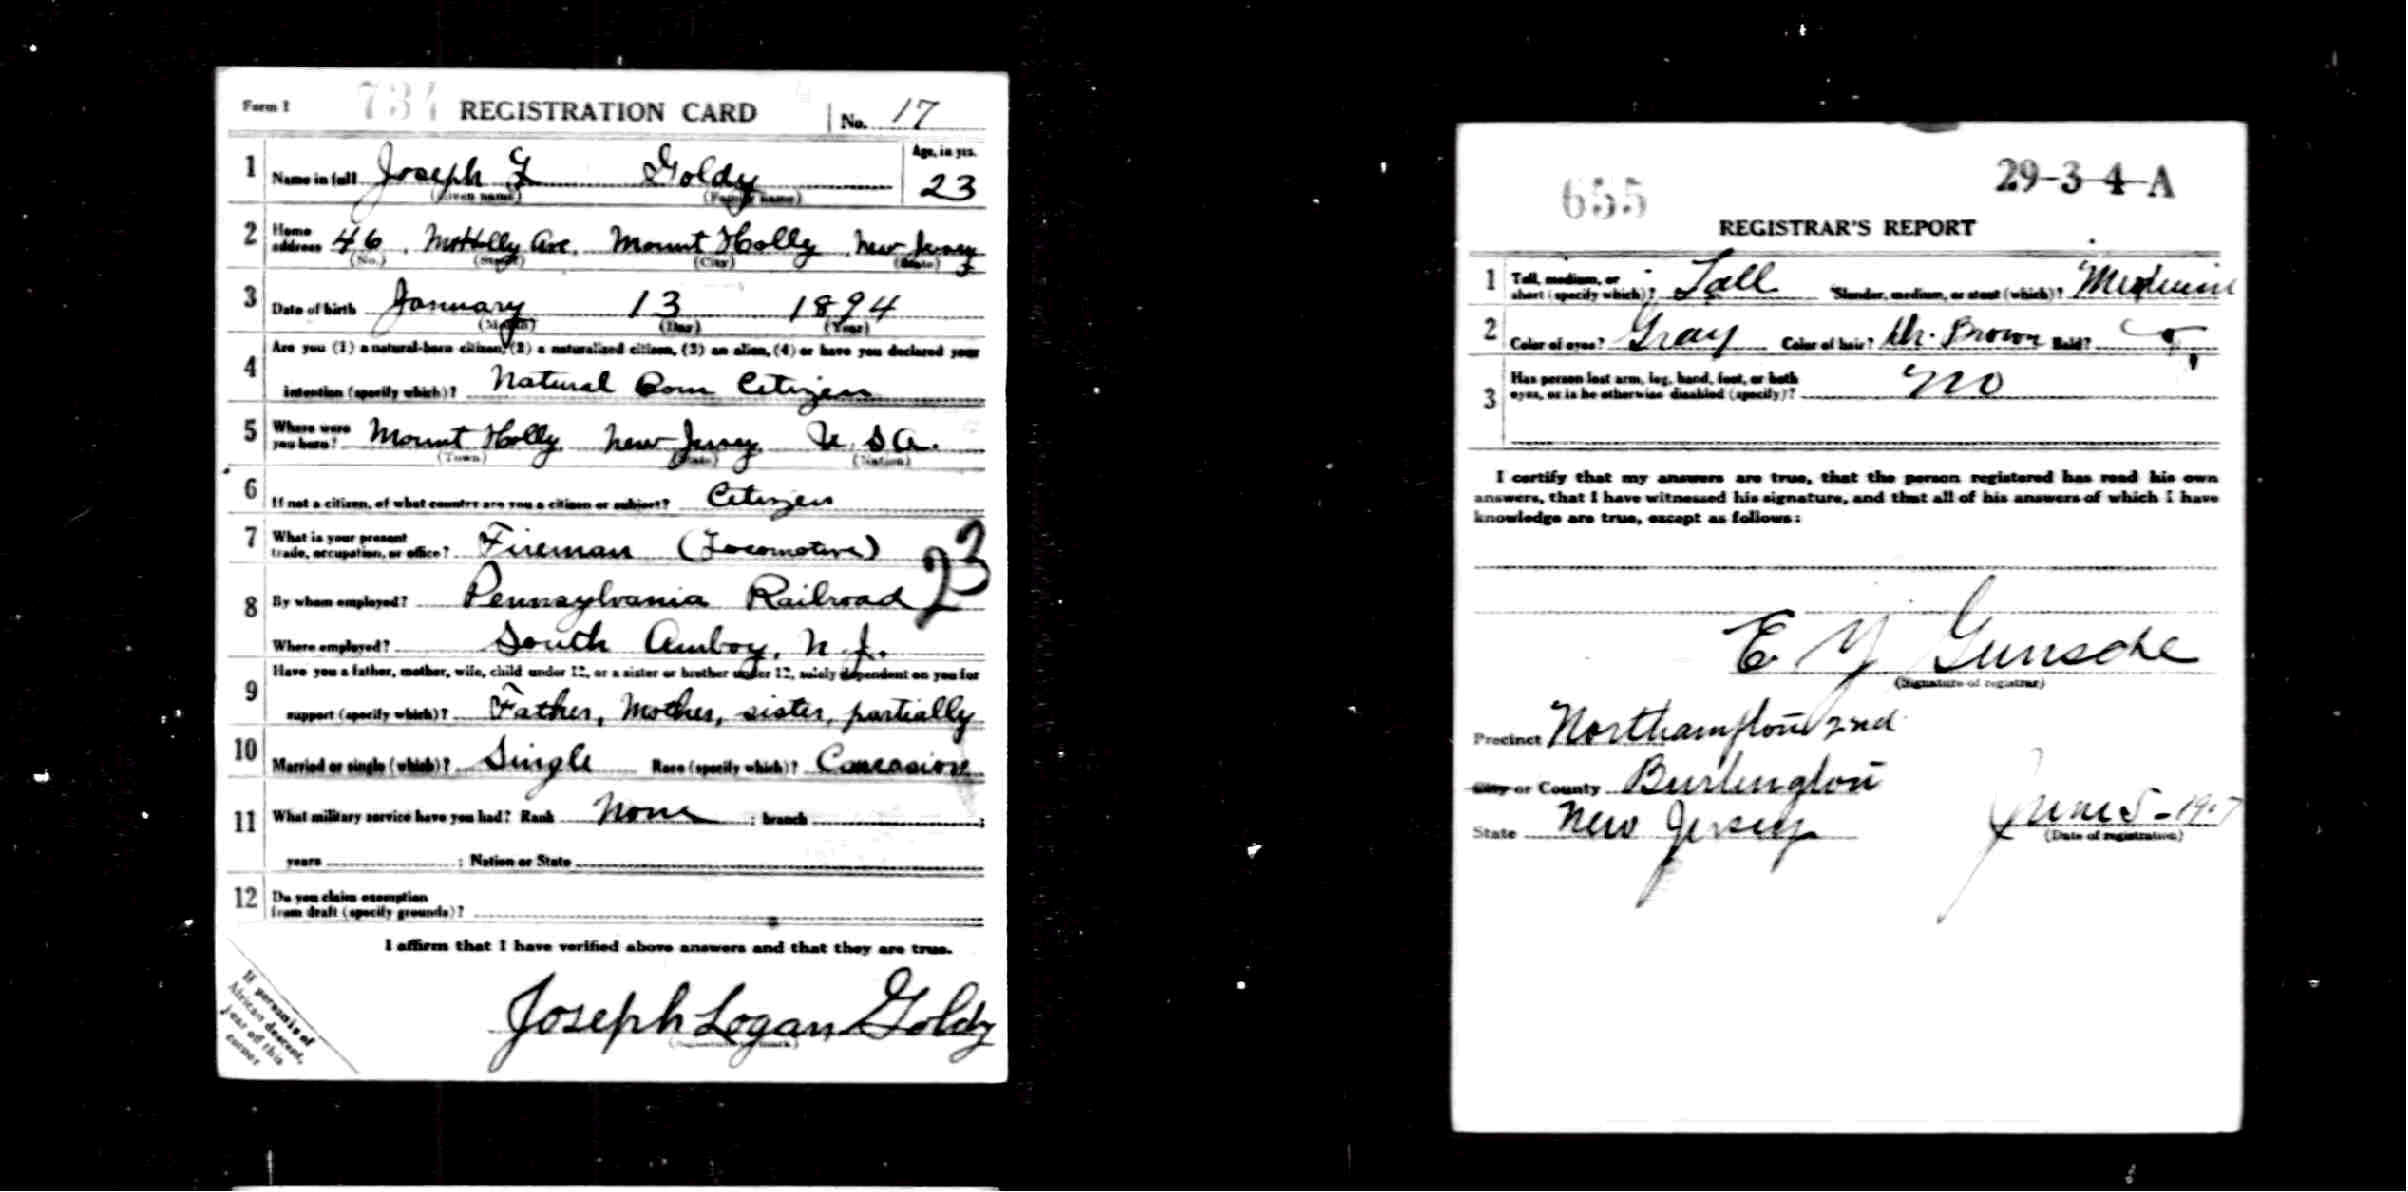 Form 1 737 REGISTRATION CARD No. 17
1 Name in full Joseph L Goldy Age, in yrs. 23
(Given name) (Family name)
2 Home address 46 Mt Holly Ave. Mount Holly New Jersey
(No.) (Street) (City) (State)
3 Date of birth January 13 1894
(Month) (Day) (Year)
4 Are you (1) a natural-born citizen, (2) a naturalized citizen, (3) an alien, (4) or have you declared your
intention (specify which)? Natural Born Citizen
5 Where were you born? Mount Holly New Jersey U. S A.
(Town) (State) (Nation)
6 If not a citizen, of what country are you a citizen or subject? Citizen
7 What is your present
trade, occupation, or office? Fireman (Locomotive) 23
8 By whom employed? Pennsylvania Railroad
Where employed? South Amboy, N. J.
9 Have you a father, mother, wife, child under 12, or a sister or brother under 12, solely dependent on you for
support (specify which)? Father, Mother, sister, partially
10 Married or single (which)? Single Race (specify which)?
11 What military service have you had? Rank None ; branch ;
years ; Nation or State
12 Do you claim exemption
from draft (specify grounds)?
I affirm that I have verified above answers and that they are true.
Joseph Logan Goldy
(Signature or mark)
If person is of
African descent,
tear off this
corner
655 29-3-4-A
REGISTRAR'S REPORT
1 Tall, medium, or
short (specify which)? Tall Slender, medium, or stout (which)? Medium
2 Color of eyes? Gray Color of hair? Brown Bald?
3 Has person lost arm, leg, hand, foot, or both
eyes, or is he otherwise disabled (specify)? No
I certify that my answers are true, that the person registered has read his own
answers, that I have witnessed his signature, and that all of his answers of which I have
knowledge are true, except as follows:
E
(Signature of registrar)
Precinct Northampton 2nd
City or County Burlington
State New Jersey June 5-1917
(Date of registration)